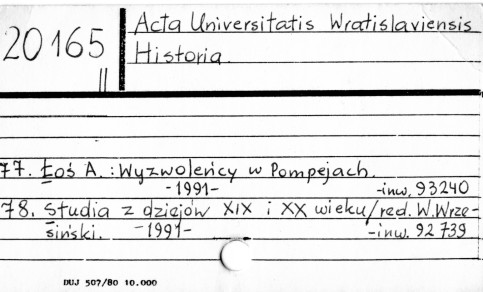 20165
II
Acta Universitatis Wratislaviensis
Historia.
77. Łoś A.: Wyzwoleńcy w Pompejach.
-1991- -inw. 93240
78. Studia z dziejów XIX i XX wieku/red. W. Wrze-
siński. -1991- -inw. 92739
DUJ 507/80 10.000